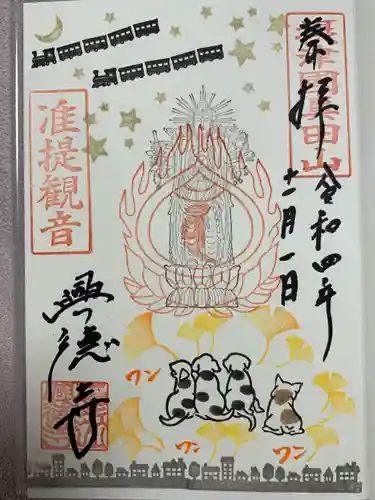 奉拝
令和四年
十一月一日
准提観音
興徳寺
ワン
ワン
ワン